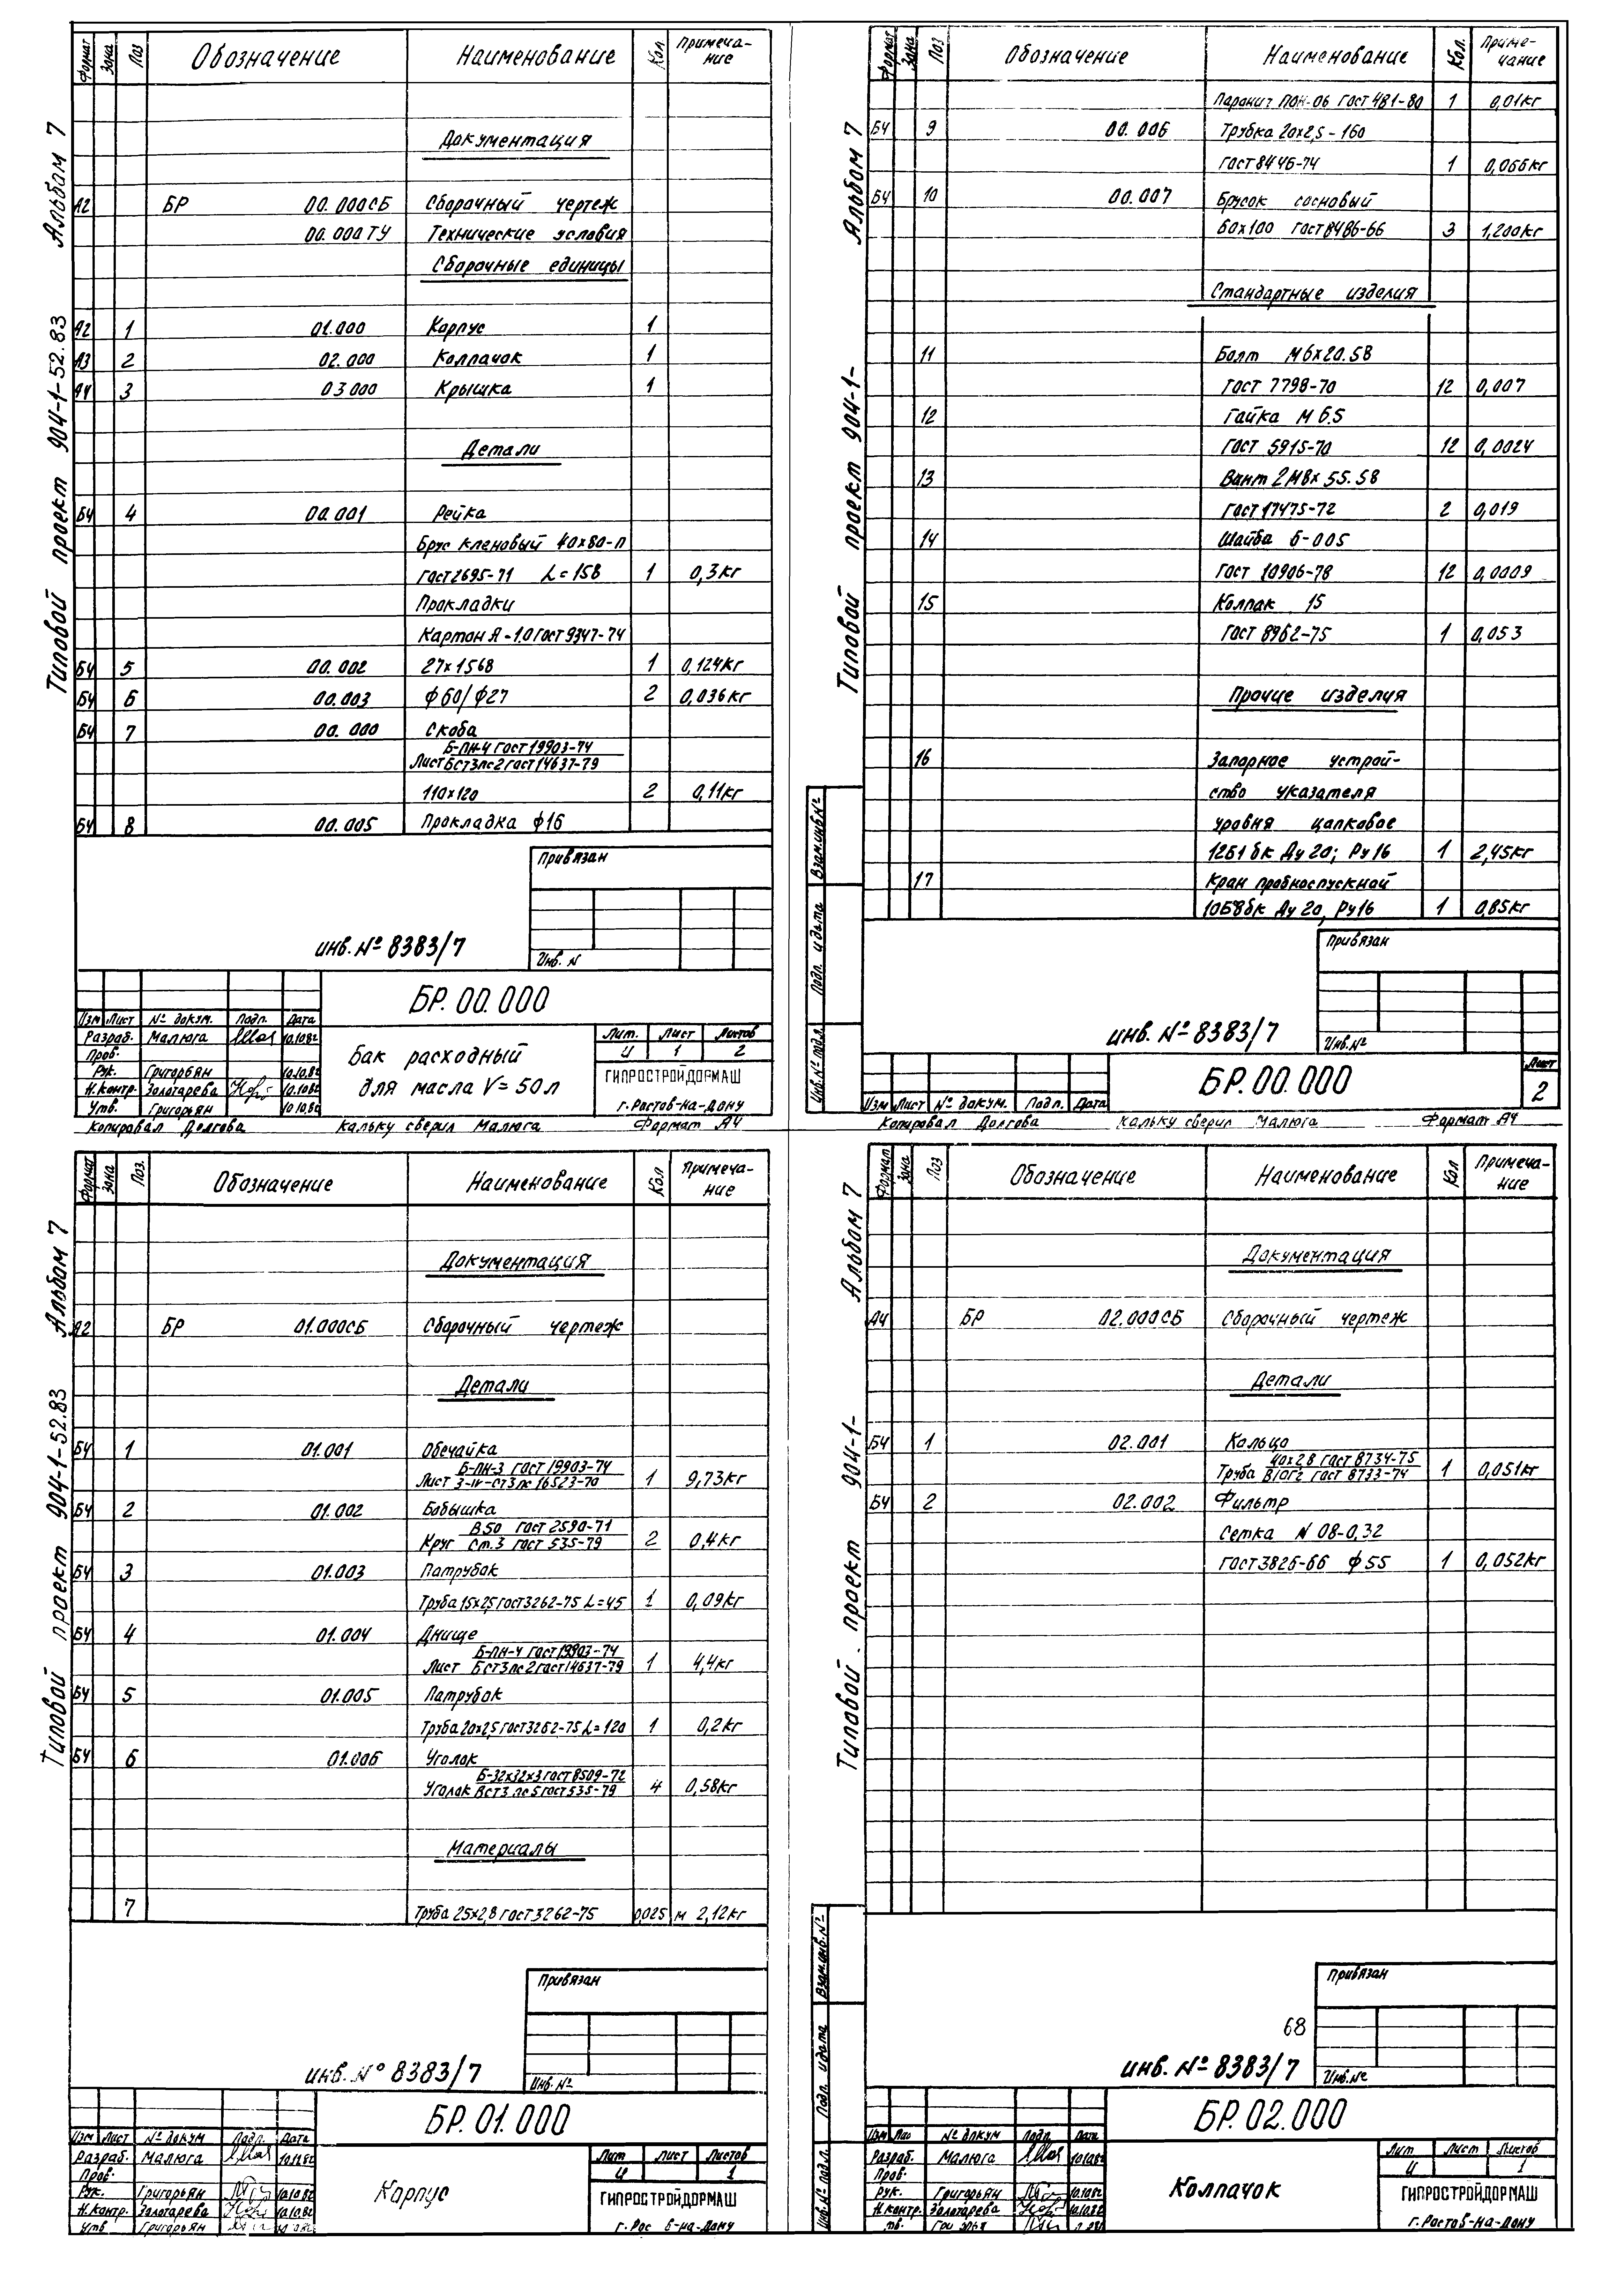 Альбом 7
Типовой проект 904-1-52.83
Формат Зона Поз Обозначение Наименование Кол. Примечание
Документация
А2 БР 00.000СБ Сборочный чертеж
00.000ТУ Технические условия
Сборочные единицы
А2 1 01.000 Корпус 1
А3 2 02.000 Колпачок 1
А4 3 03 000 Крышка 1
Детали
БЧ 4 00.001 Рейка
Брус кленовый 40х80-п
Гост2695-71 L=158 1 0,3кг
Прокладки
Картон А-1.0 Гост 9347-74
БЧ 5 00.002 27х1568 1 0,124кг
БЧ 6 00.003 ф60/ф27 2 0,036кг
БЧ 7 00.000 Скоба
Б-ПН-4 Гост 19903-74
Лист БСт3пс2 Гост 14637-79
110х120 2 0,11кг
БЧ 8 00.005 Прокладка ф16
Привязан
Инв. N
инв. № 8383/7
БР.00.000
Изм Лист № докум. Подп. Дата
Разраб. Малюга 10.10.82
Пров.
Рук. Григорьян 10.10.82
Н.контр. Золотарева 10.10.82
Утв. Григорьян 10.10.82
Бак расходный
для масла V=50л
Лит. Лист Листов
И 1 2
ГИПРОСТРОЙДОРМАШ
г.Ростов-на-Дону
Копировал Долгова Кальку сверил Малюга Формат А4
Альбом 7
Типовой проект 904-1-
Формат Зона Поз Обозначение Наименование Кол. Примечание
Паронит ПОН-06 Гост 481-80 1 0,01кг
БЧ 9 00.006 Трубка 20х2,5-160
Гост 8446-74 1 0,066кг
БЧ 10 00.007 Брусок сосновый
60х100 Гост 8486-66 3 1,200кг
Стандартные изделия
11 Болт М6х20.58
Гост 7798-70 12 0,007
12 Гайка М6.5
Гост 5915-70 12 0,0024
13 Винт 2М8х55.58
Гост 17475-72 2 0,019
14 Шайба 6-005
Гост 10906-78 12 0,0009
15 Колпак 15
Гост 8962-75 1 0,053
Прочие изделия
16 Запорное устрой-
ство указателя
уровня цапковое
12б1бк Ду 20; Ру16 1 2,45кг
17 Кран пробноспускной
10б8бк Ду 20, Ру16 1 0,85кг
Взам.инв№
Подп. и дата
Инв.№ подл.
Привязан
Инв.№
инв. № 8383/7
Изм Лист № докум. Подп. Дата
БР.00.000
Лист
2
Копировал Долгова Кальку сверил Малюга Формат А4
Альбом 7
Типовой проект 904-1-52.83
Формат Зона Поз. Обозначение Наименование Кол Примечание
Документация
А2 БР 01.000СБ Сборочный чертеж
Детали
БЧ 1 01.001 Обечайка
Б-ПН-3 Гост 19903-74
Лист 3-IV-Ст3пс 16523-70 1 9,73кг
БЧ 2 01.002 Бобышка
В50 Гост 2590-71
Круг Ст.3 Гост 535-79 2 0,4кг
БЧ 3 01.003 Патрубок
Труба 15х2,5 Гост 3262-75 L=45 1 0,09кг
БЧ 4 01.004 Днище
Б-ПН-4 Гост 19903-74
Лист БСт3пс2 Гост 14637-79 1 4,4кг
БЧ 5 01.005 Патрубок
Труба 20х2,5 Гост 3262-75 L=120 1 0,2кг
БЧ 6 01.006 Уголок
Б-32х32х3 Гост 8509-72
Уголок ВСт3пс5 Гост 535-79 4 0,58кг
Материалы
7 Труба 25х2,8 Гост 3262-75 0,025 м 2,12кг
Привязан
Инв. №
инв. № 8383/7
БР.01.000
Изм Лист № докум Подп. Дата
Разраб. Малюга 10.10.82
Пров.
Рук. Григорьян 10.10.82
Н.контр. Золотарева 10.10.82
Утв Григорьян
Корпус
Лит Лист Листов
И 1
ГИПРОСТРОЙДОРМАШ
г.Рос в-на-Дону
Альбом 7
Типовой проект 904-1-
Формат Зона Поз Обозначение Наименование Кол Примечание
Документация
А4 БР 02.000СБ Сборочный чертеж
Детали
БЧ 1 02.001 Кольцо
40х2,8 Гост 8734-75
Труба В10Г2 Гост 8733-74 1 0,051кг
БЧ 2 02.002 Фильтр
Сетка N 08-0,32
Гост 3826-66 ф55 1 0,052кг
Взам.инв.№
Подп. и дата
Инв.№ подл.
Привязан
68
Инв.№
инв. № 8383/7
БР.02.000
Изм Лис № докум Подп. Дата
Разраб. Малюга 10.10.82
Пров.
Рук. Григорьян 10.10.82
Н.контр. Золотарева 10.10.82
Колпачок
Лит Лист Листов
И 1
ГИПРОСТРОЙДОРМАШ
г.Ростов-на-Дону